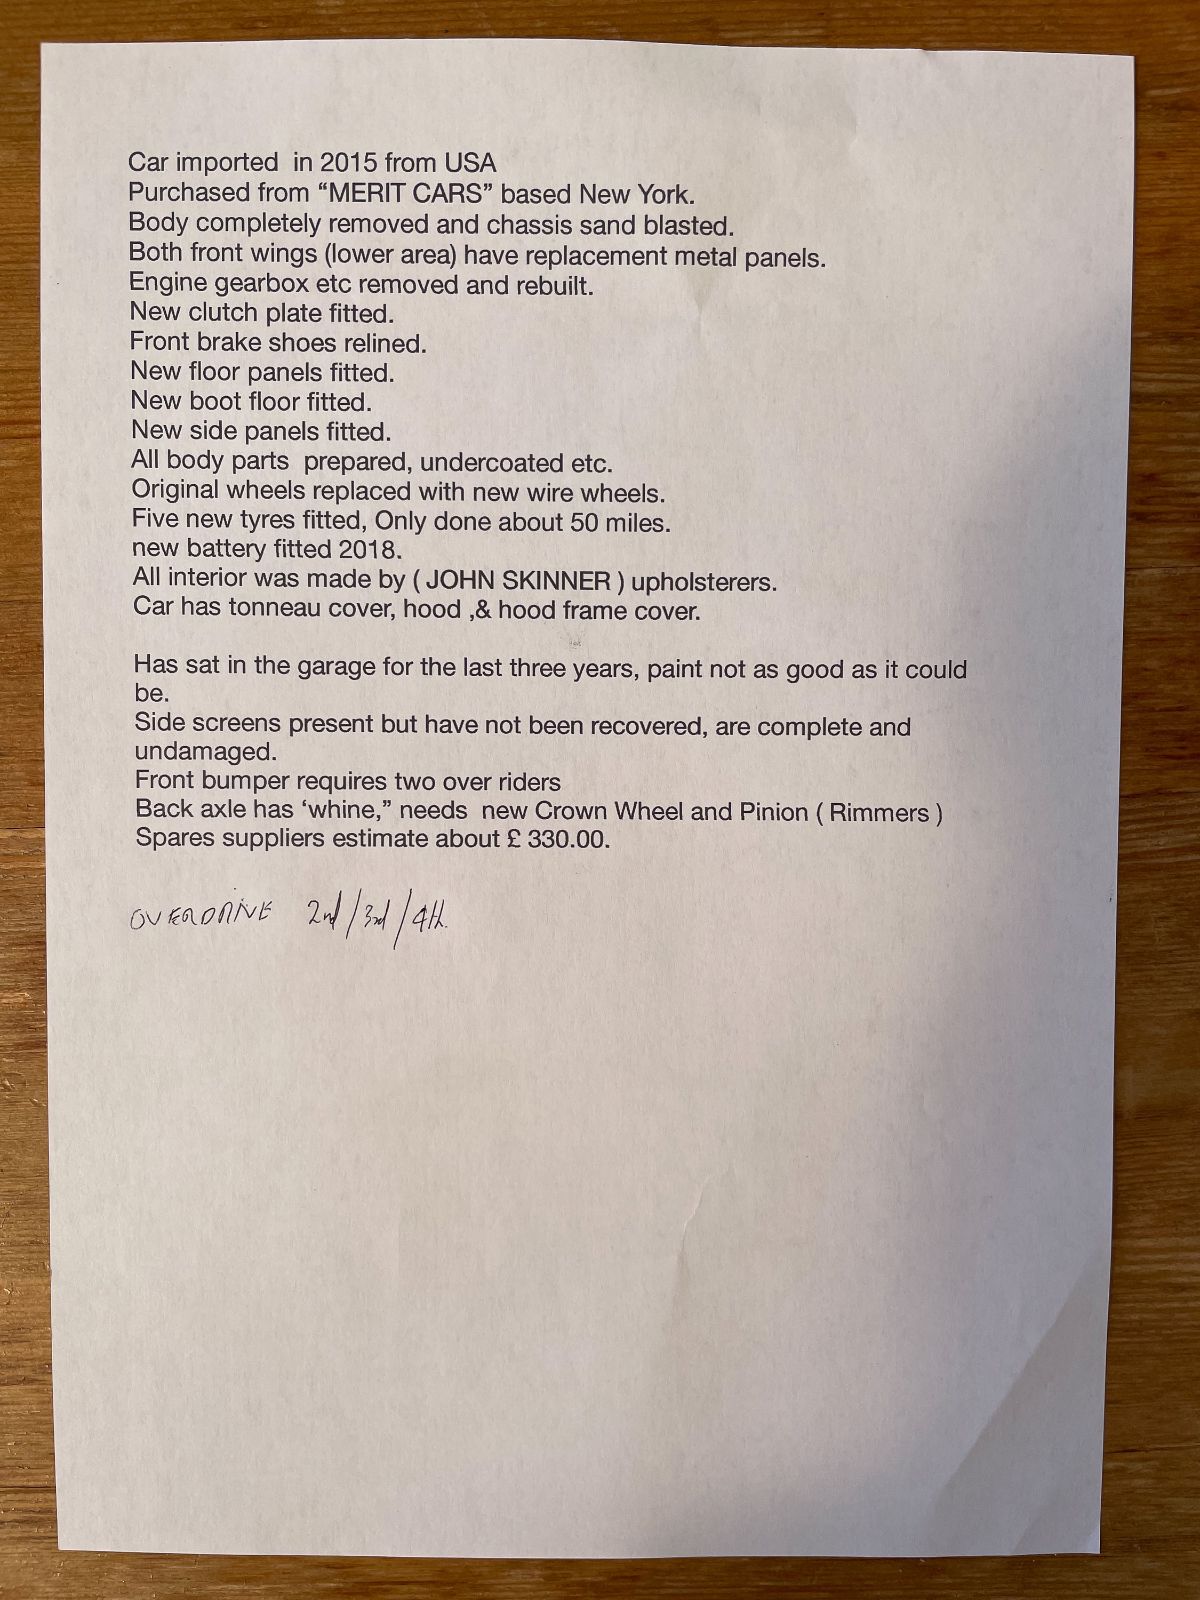 Car imported  in 2015 from USA
Purchased from “MERIT CARS” based New York.
Body completely removed and chassis sand blasted.
Both front wings (lower area) have replacement metal panels.
Engine gearbox etc removed and rebuilt.
New clutch plate fitted.
Front brake shoes relined.
New floor panels fitted.
New boot floor fitted.
New side panels fitted.
All body parts  prepared, undercoated etc.
Original wheels replaced with new wire wheels.
Five new tyres fitted, Only done about 50 miles.
new battery fitted 2018.
All interior was made by ( JOHN SKINNER ) upholsterers.
Car has tonneau cover, hood ,& hood frame cover.
Has sat in the garage for the last three years, paint not as good as it could
be.
Side screens present but have not been recovered, are complete and
undamaged.
Front bumper requires two over riders
Back axle has ‘whine,” needs  new Crown Wheel and Pinion ( Rimmers )
Spares suppliers estimate about £ 330.00.
OVERDRIVE 2nd/3rd/4th.